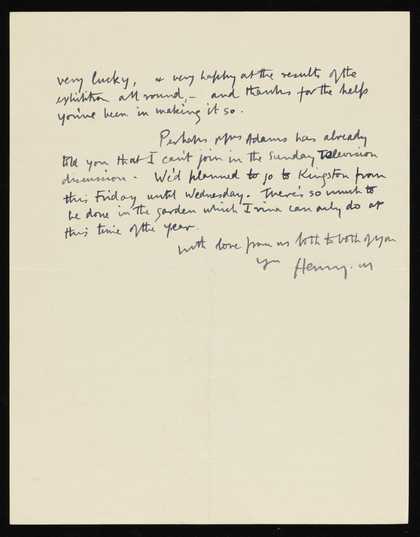 very lucky, & very happy at the results of the
exhibition all round, – and thanks for the help
you've been in making it so.
Perhaps Mrs Adams has already
told you that I can't join in the Sunday Television
discussion. We'd planned to go to Kingston from
this Friday until Wednesday. There's so much to
be done in the garden which Irina can only do at
this time of the year.
with love from us both to both of you
Yrs
Henry. M